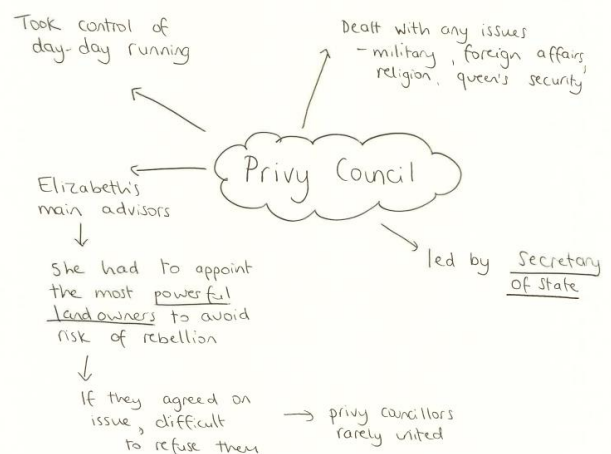 Took control of
day-day running
Dealt with any issues
- military, foreign affairs,
religion, queen's security
Privy Council
Elizabeth's
main advisors
She had to appoint
the most powerful
landowners to avoid
risk of rebellion
If they agreed on
issue, difficult
to refuse them
privy councillors
rarely united
led by secretary
of state